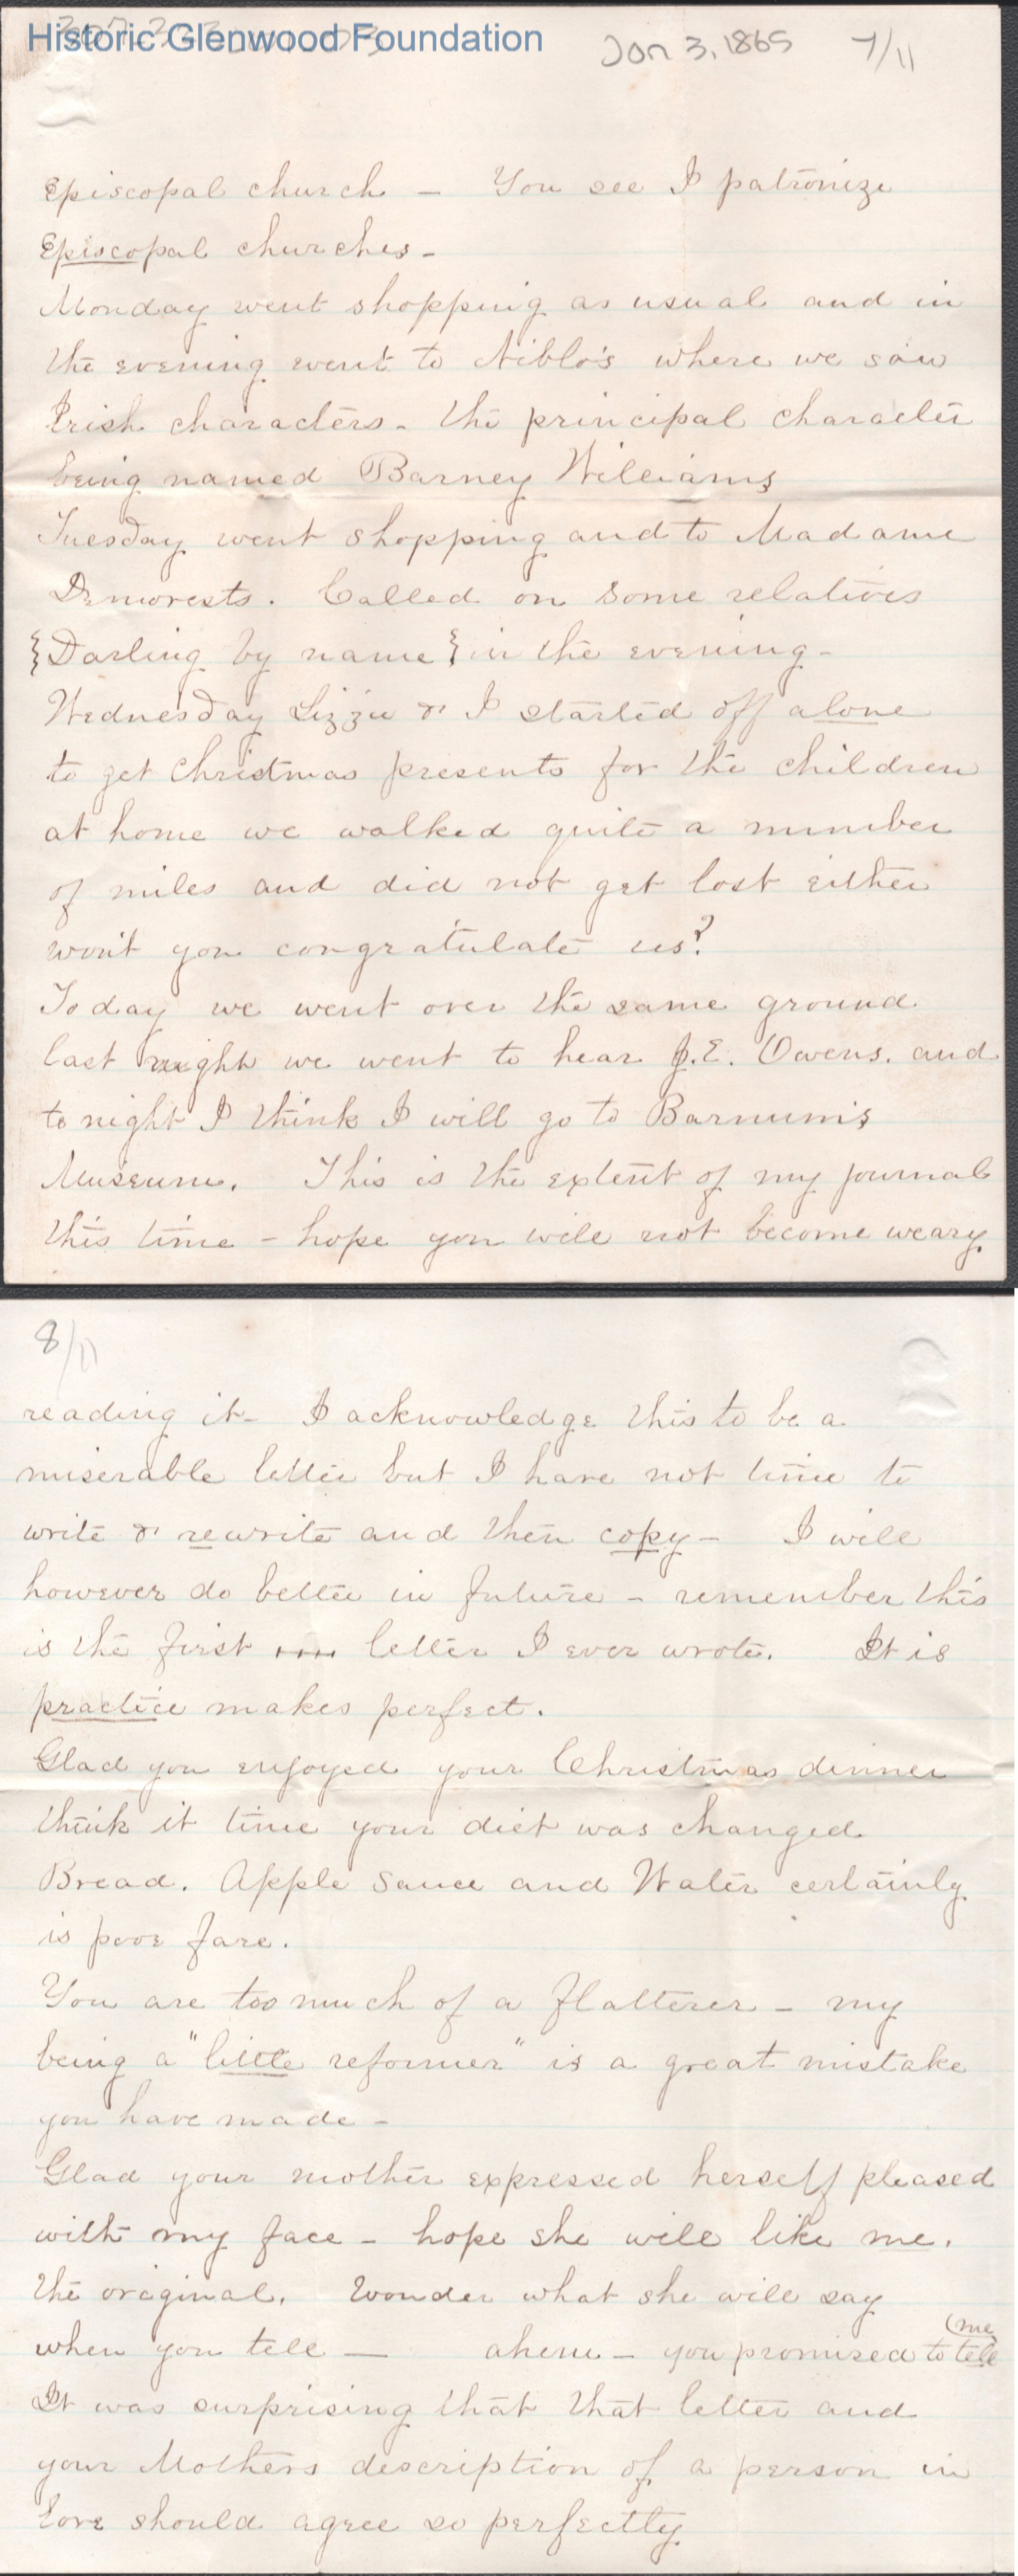 Historic Glenwood Foundation
Jan 3, 1865 7/11
Episcopal church – You see I patronize
Episcopal churches –
Monday went shopping as usual and in
the evening went to Niblo's where we saw
Irish characters – the principal character
being named Barney Williams
Tuesday went shopping and to Madame
Demorests. Called on some relatives
{Darling by name} in the evening –
Wednesday Lizzie & I started off alone
to get Christmas presents for the children
at home we walked quite a number
of miles and did not get lost either
won't you congratulate us?
Today we went over the same ground
last night we went to hear J.E. Owens. and
to night I think I will go to Barnum's
Museum. This is the extent of my journal
this time – hope you will not become weary
8/11
reading it – I acknowledge this to be a
miserable letter but I have not time to
write & rewrite and then copy – I will
however do better in future – remember this
is the first letter I ever wrote. It is
practice makes perfect.
Glad you enjoyed your Christmas dinner
think it time your diet was changed
Bread. Apple Sauce and Water certainly
is poor fare.
You are too much of a flatterer – my
being a "little reformer" is a great mistake
you have made –
Glad your mother expressed herself pleased
with my face – hope she will like me.
the original. Wonder what she will say
when you tell — ahem – you promised to tell (me
It was surprising that that letter and
your Mothers description of a person in
love should agree so perfectly